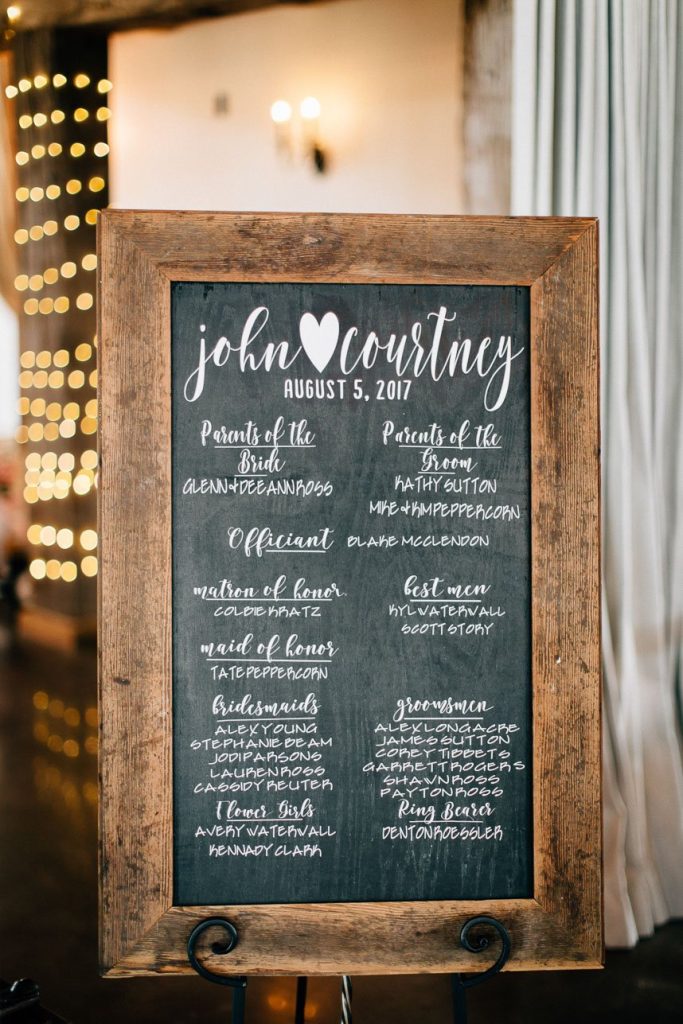 john ♥ courtney
AUGUST 5, 2017
Parents of the
Bride
GLENN & DEEANN ROSS
Parents of the
Groom
KATHY SUTTON
MIKE & KIM PEPPERCORN
Officiant BLAKE MCCLENDON
matron of honor
COLBIE KRATZ
best men
KYL WATERWALL
SCOTT STORY
maid of honor
TATE PEPPERCORN
bridesmaids
ALEX YOUNG
STEPHANIE BEAM
JODI PARSONS
LAUREN ROSS
CASSIDY REUTER
groomsmen
ALEX LONGACRE
JAMES SUTTON
COREY TIBBETS
GARRETT ROGERS
SHAWN ROSS
PAYTON ROSS
Flower Girls
AVERY WATERWALL
KENNADY CLARK
Ring Bearer
DENTON ROESSLER